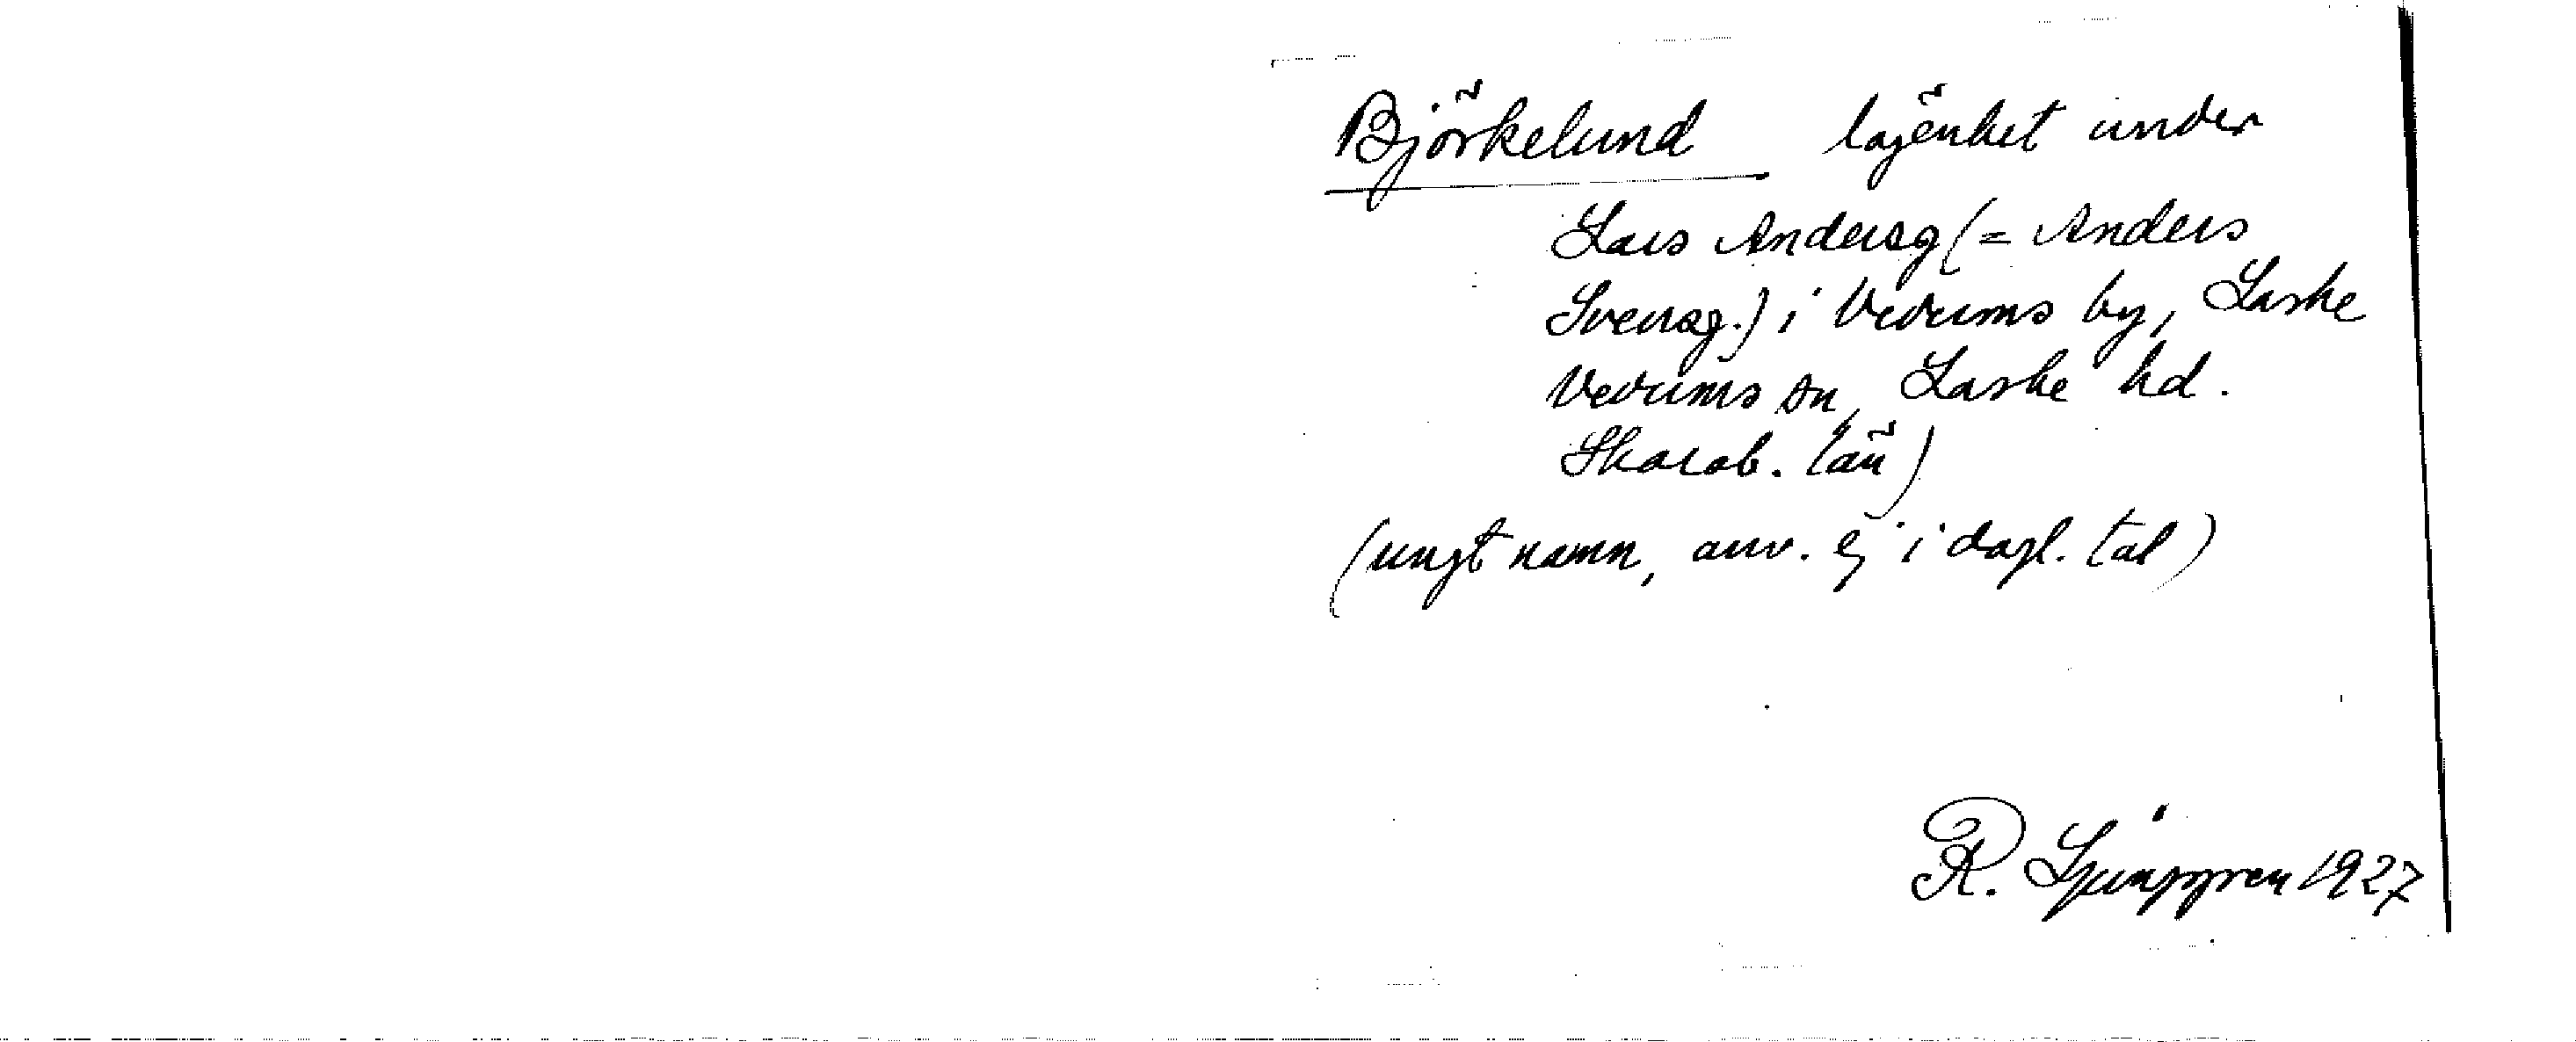 Björkelund lägenhet under
Lars Andersg (= Anders
Svensg.) i Vedums by, Laske
Vedums sn, Laske hd.
Skarab. län)
(ungt namn, anv. ej i dagl. tal)
R. Ljunggren 1927